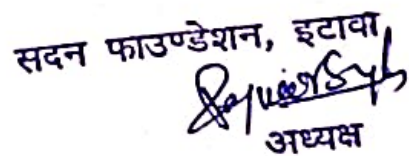 सदन फाउण्डेशन, इटावा
अध्यक्ष